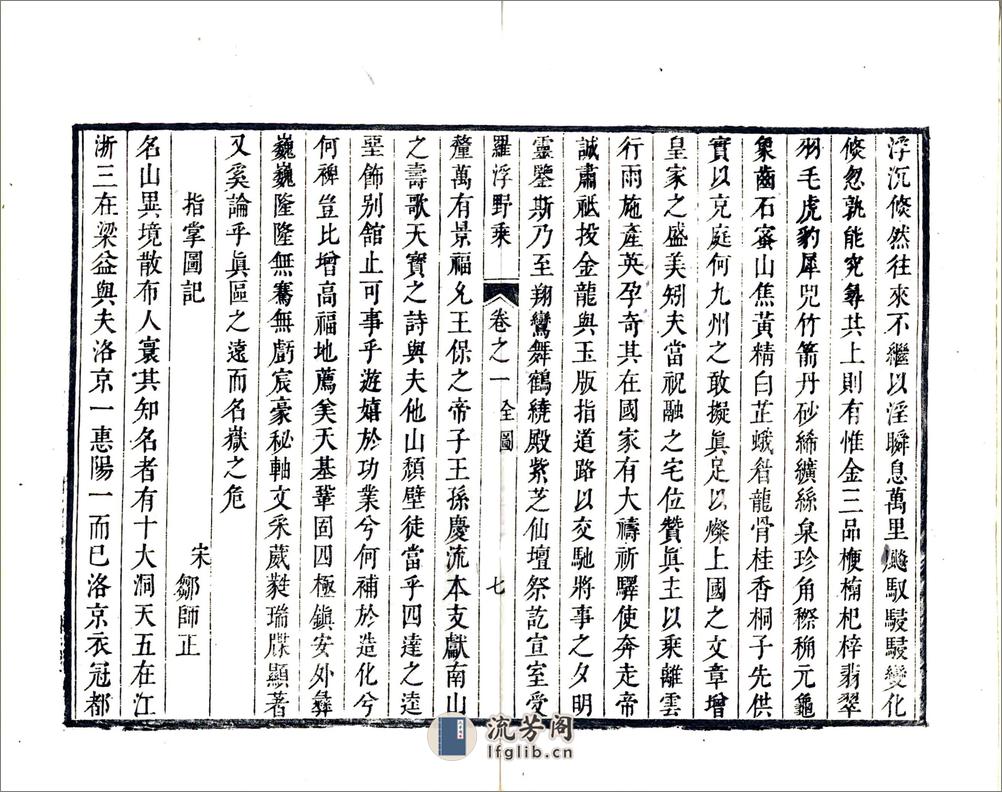 浮沉倐然往來不繼以淫瞬息萬里飈馭駸駸變化
倐忽孰能究尋其上則有惟金三品楩楠杞梓翡翠
羽毛虎豹犀兕竹箭丹砂絺纊絲枲珍角穄穪元龜
象齒石蜜山焦黃精白芷蛾眉龍骨桂香桐子先供
實以克庭何九州之敢擬眞足以燦上國之文章增
皇家之盛美矧夫當祝融之宅位贊眞主以乘離雲
行雨施產英孕奇其在國家有大禱祈驛使奔走帝
誠肅祗投金龍與玉版指道路以交馳將事之夕明
靈鑒斯乃至翔鸞舞鶴繞殿紫芝仙壇祭訖宣室受
羅浮野乘 卷之一 全圖 七
釐萬有景福允王保之帝子王孫慶流本支獻南山
之壽歌天寶之詩與夫他山頹壁徒當乎四達之逵
堊飾别館止可事乎遊嬉於功業兮何補於造化兮
何裨豈比增高福地薦矣天基鞏固四極鎭安外彝
巍巍隆隆無騫無虧宸豪秘軸文采葳蕤瑞牒顯著
又奚論乎眞區之遠而名嶽之危
指掌圖記
宋 鄒師正
名山異境散布人寰其知名者有十大洞天五在江
浙三在梁益與夫洛京一惠陽一而已洛京衣冠都
流芳阁
lfglib.cn